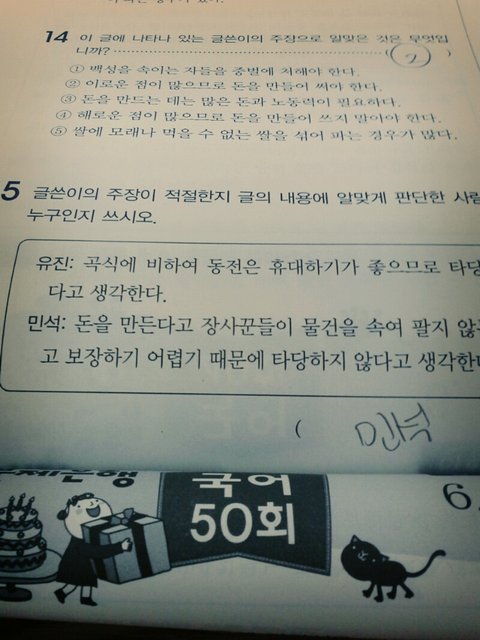 14 이 글에 나타나 있는 글쓴이의 주장으로 알맞은 것은 무엇입
니까? ( 2 )
① 백성을 속이는 자들을 중벌에 처해야 한다.
② 이로운 점이 많으므로 돈을 만들어 써야 한다.
③ 돈을 만드는 데는 많은 돈과 노동력이 필요하다.
④ 해로운 점이 많으므로 돈을 만들어 쓰지 말아야 한다.
⑤ 쌀에 모래나 먹을 수 없는 쌀을 섞어 파는 경우가 많다.
5 글쓴이의 주장이 적절한지 글의 내용에 알맞게 판단한 사람
누구인지 쓰시오.
유진: 곡식에 비하여 동전은 휴대하기가 좋으므로 타당
다고 생각한다.
민석: 돈을 만든다고 장사꾼들이 물건을 속여 팔지 않
고 보장하기 어렵기 때문에 타당하지 않다고 생각한
( 민석
은행
국어
50회
6.